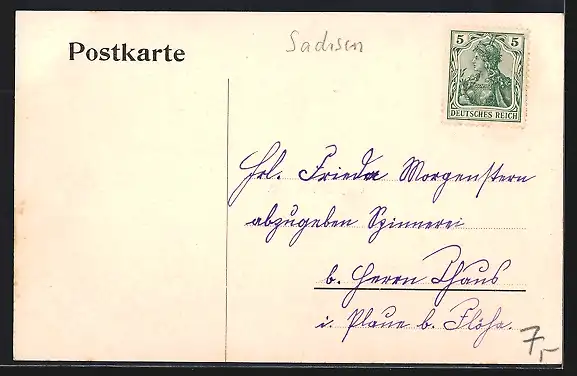 Postkarte
Sachsen
5 5
DEUTSCHES REICH
Frl. Frieda Morgenstern
abzugeben Spinnerei
b. Herrn Thaus
i. Plaue b. Flöha.
7,-